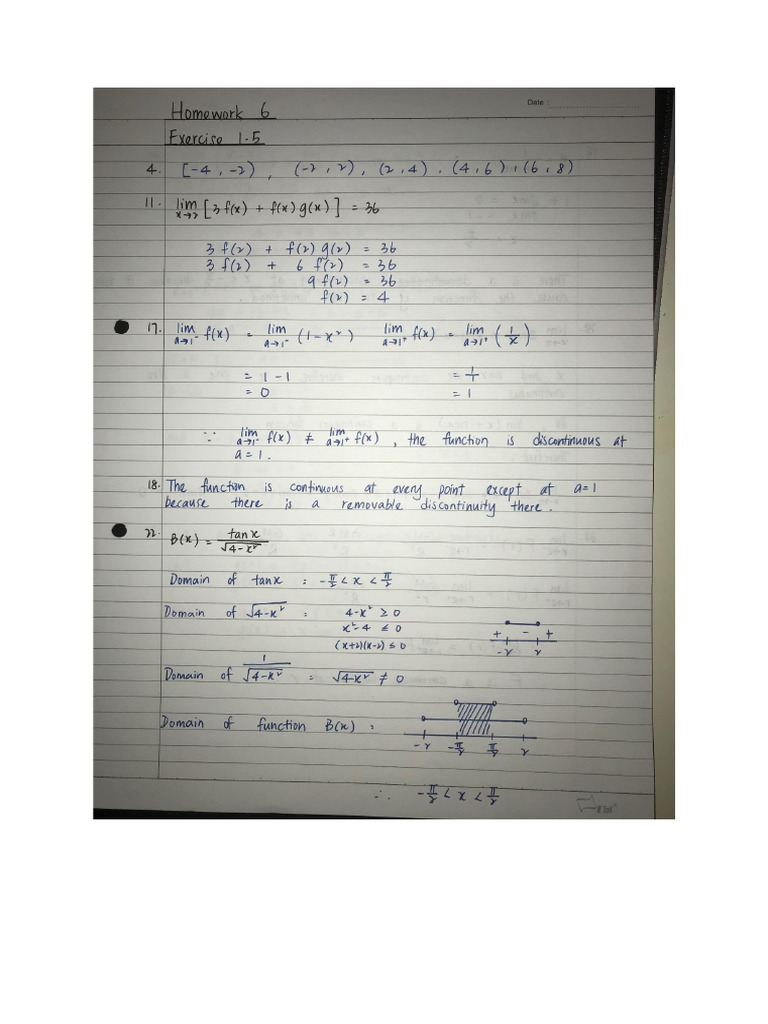 Date :
Homework 6
Exercise 1.5
4. [-4, -2), (-2, 2), (2, 4), (4, 6), (6, 8)
11. lim x→2 [3 f(x) + f(x) g(x)] = 36
3 f(2) + f(2) g(2) = 36
3 f(2) + 6 f(2) = 36
9 f(2) = 36
f(2) = 4
17. lim a→1⁻ f(x) = lim a→1⁻ (1 - x²) lim a→1⁺ f(x) = lim a→1⁺ (1/x)
= 1 - 1 = 1/1
= 0 = 1
∵ lim a→1⁻ f(x) ≠ lim a→1⁺ f(x), the function is discontinuous at
a = 1.
18. The function is continuous at every point except at a=1
because there is a removable discontinuity there.
22. B(x) = tan x / √(4-x²)
Domain of tan x : -π/2 < x < π/2
Domain of √(4-x²) : 4-x² ≥ 0
x²-4 ≤ 0
(x+2)(x-2) ≤ 0
+ - +
-2 2
Domain of 1/√(4-x²) : √(4-x²) ≠ 0
Domain of function B(x) :
-2 -π/2 π/2 2
∴ -π/2 < x < π/2